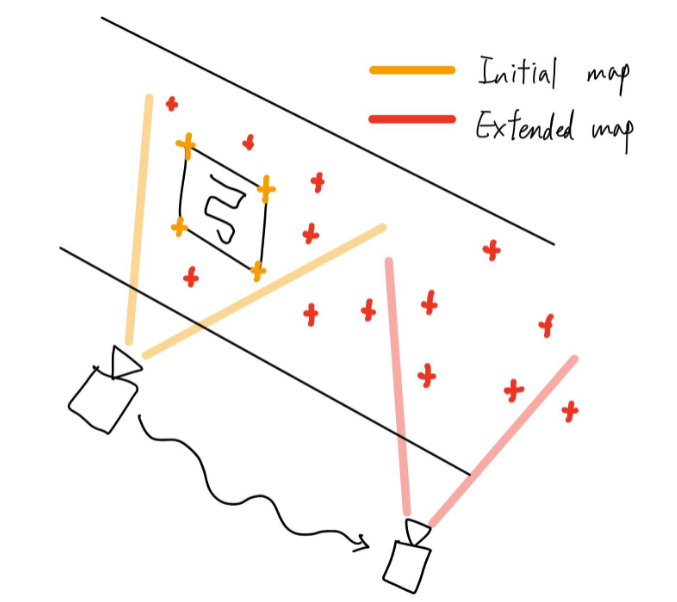 Initial map
Extended map